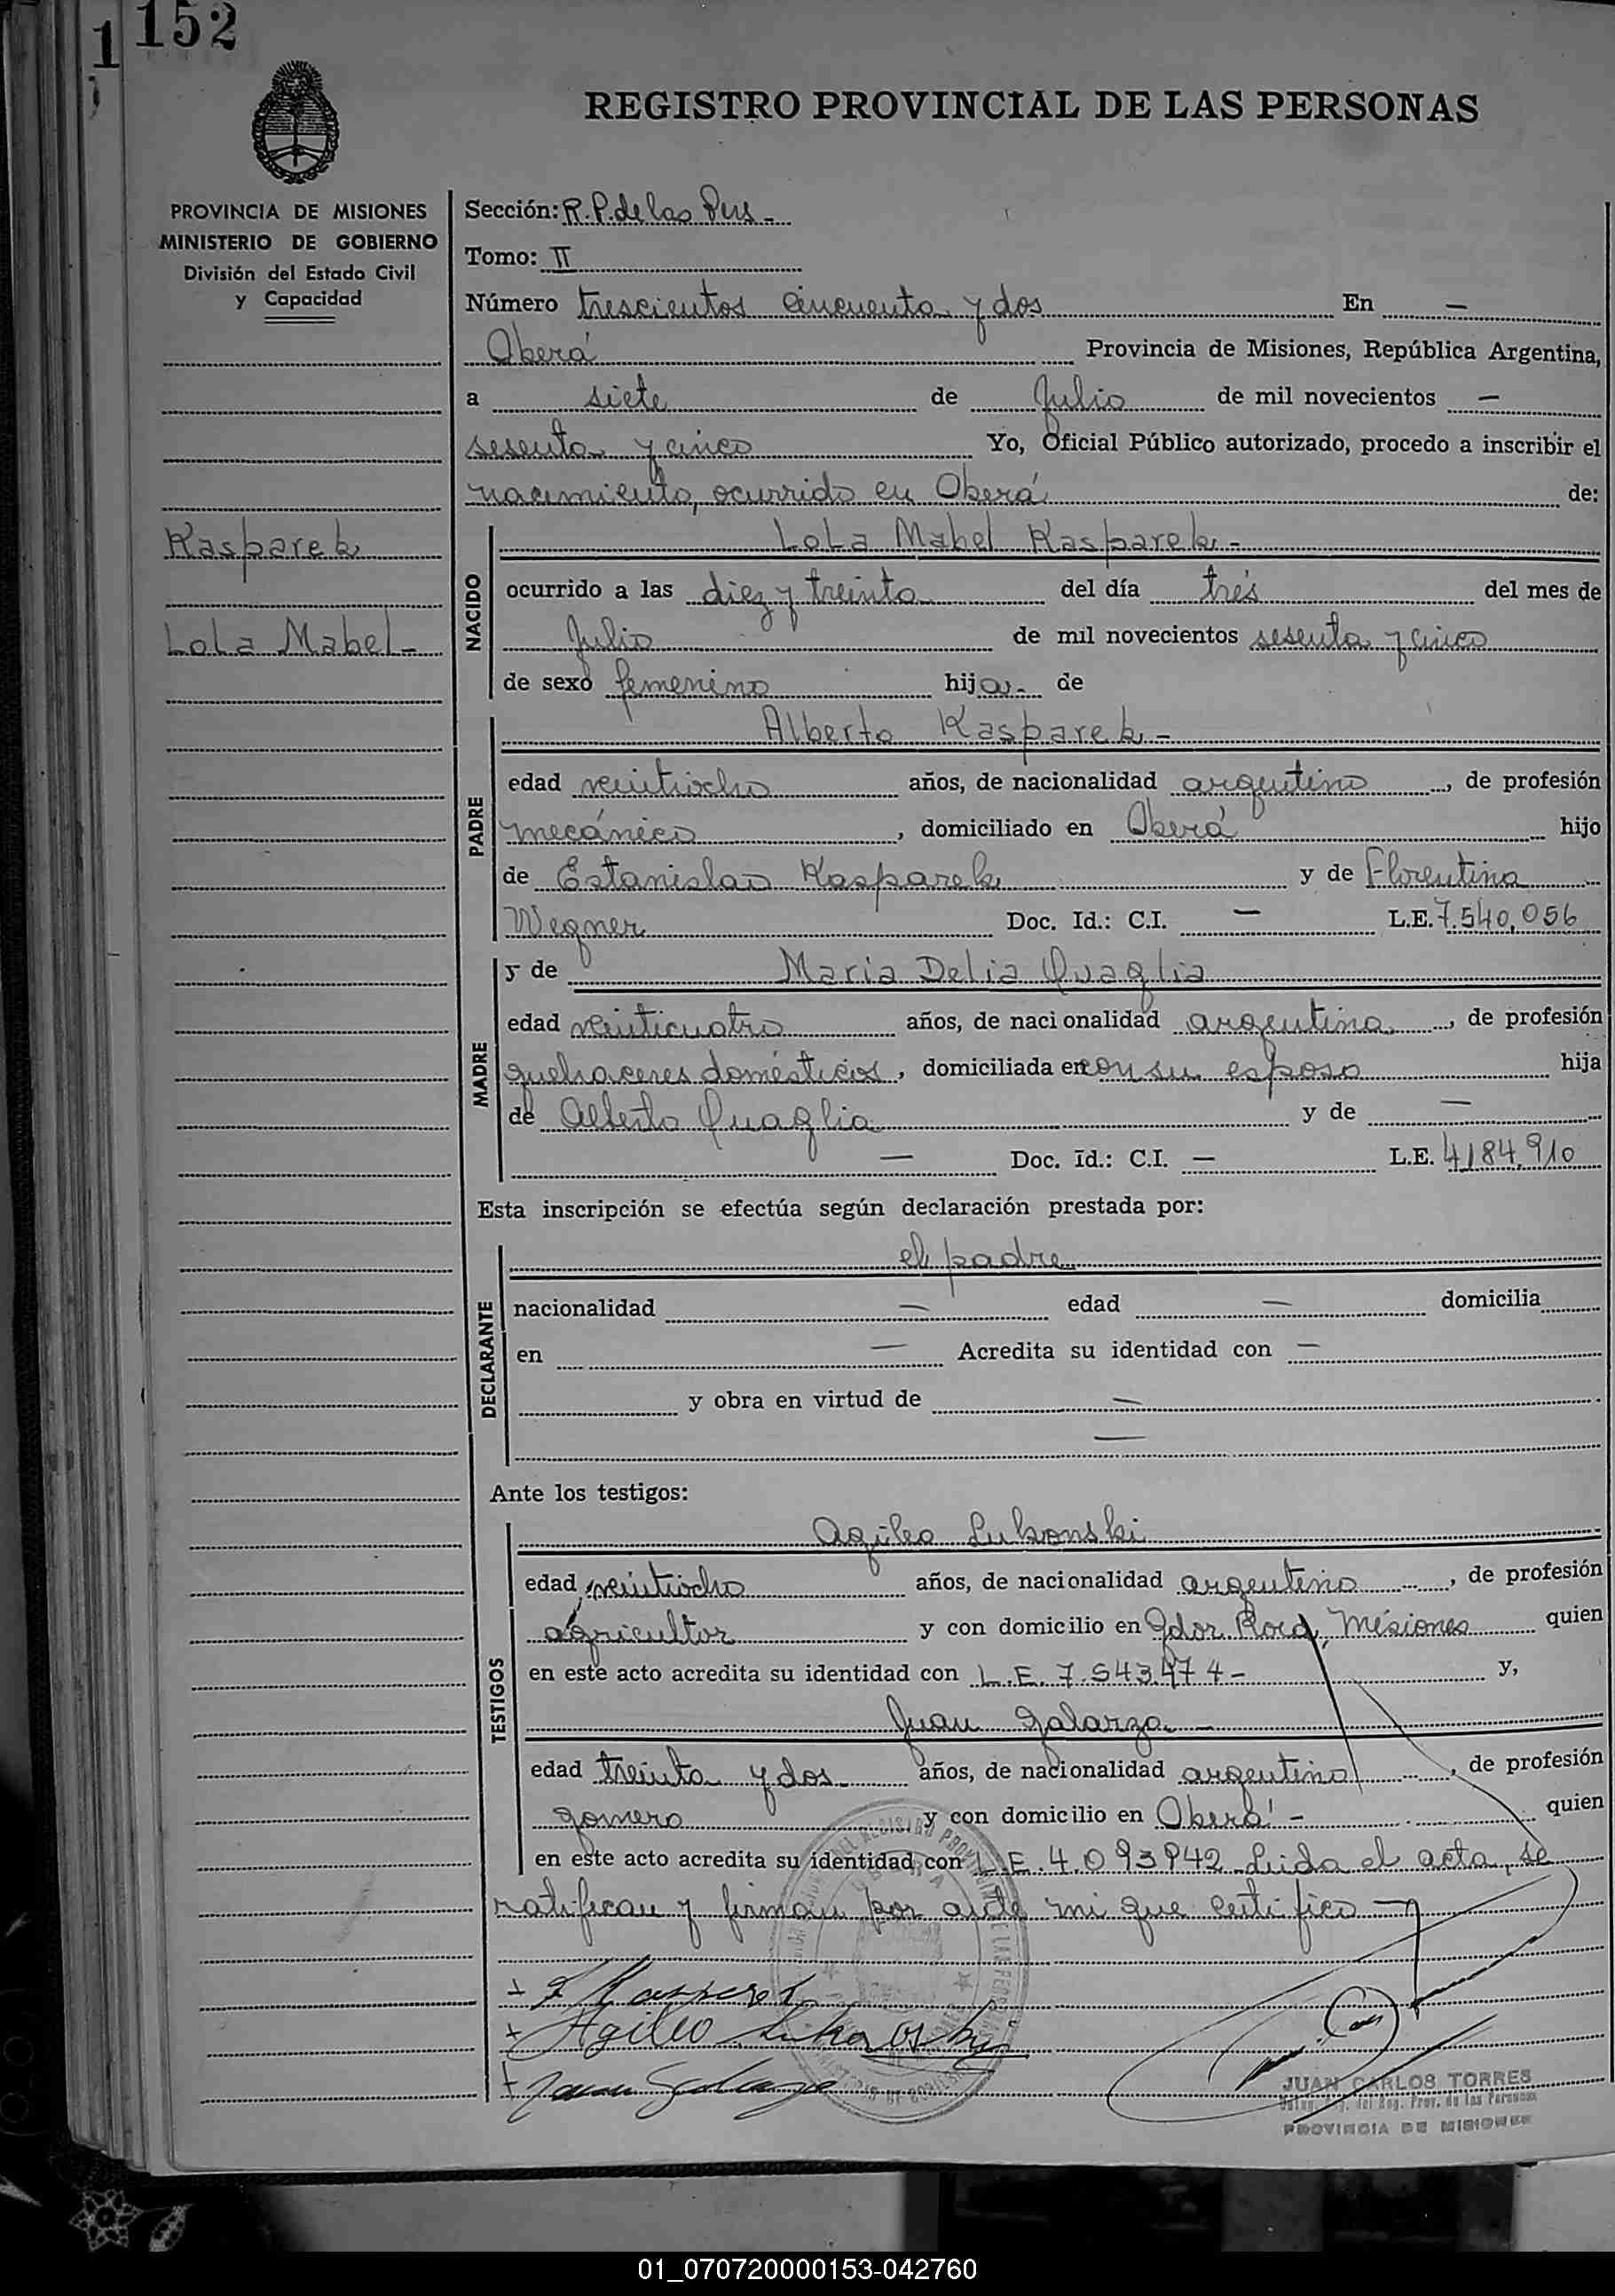 1 152
REGISTRO PROVINCIAL DE LAS PERSONAS
PROVINCIA DE MISIONES
MINISTERIO DE GOBIERNO
División del Estado Civil
y Capacidad
Kasparek
Lola Mabel-
Sección: R.P. de las Pers -
Tomo: II
Número trescientos cincuenta y dos En —
Oberá Provincia de Misiones, República Argentina,
a siete de Julio de mil novecientos —
sesenta y cinco Yo, Oficial Público autorizado, procedo a inscribir el
nacimiento, ocurrido en Oberá de:
NACIDO
Lola Mabel Kasparek -
ocurrido a las diez y treinta del día tres del mes de
Julio de mil novecientos sesenta y cinco
de sexo femenino hija - de
PADRE
Alberto Kasparek -
edad veintiocho años, de nacionalidad argentino, de profesión
mecánico, domiciliado en Oberá hijo
de Estanislao Kasparek y de Florentina
Wegner Doc. Id.: C.I. — L.E. 7.540,056
MADRE
y de Maria Delia Quaglia
edad veinticuatro años, de nacionalidad argentina, de profesión
quehaceres domésticos, domiciliada en con su esposo hija
de Alberto Quaglia y de —
— Doc. Id.: C.I. — L.E. 4184,910
Esta inscripción se efectúa según declaración prestada por:
DECLARANTE
el padre
nacionalidad — edad — domicilia
en — Acredita su identidad con —
y obra en virtud de —
—
Ante los testigos:
TESTIGOS
Agileo Lukonski
edad veintiocho años, de nacionalidad argentino, de profesión
agricultor y con domicilio en Gdor. Roca, Misiones quien
en este acto acredita su identidad con L.E. 7.543.474 - y,
Juan Galarza —
edad treinta y dos años, de nacionalidad argentino, de profesión
gomero y con domicilio en Oberá - quien
en este acto acredita su identidad con L.E. 4.093942 Leida el acta, se
ratifican y firman por ante mi que certifico —
Agileo
Juan Galarza
JUAN CARLOS TORRES
Reg. Prov. de las Personas
PROVINCIA DE MISIONES
01_070720000153-042760